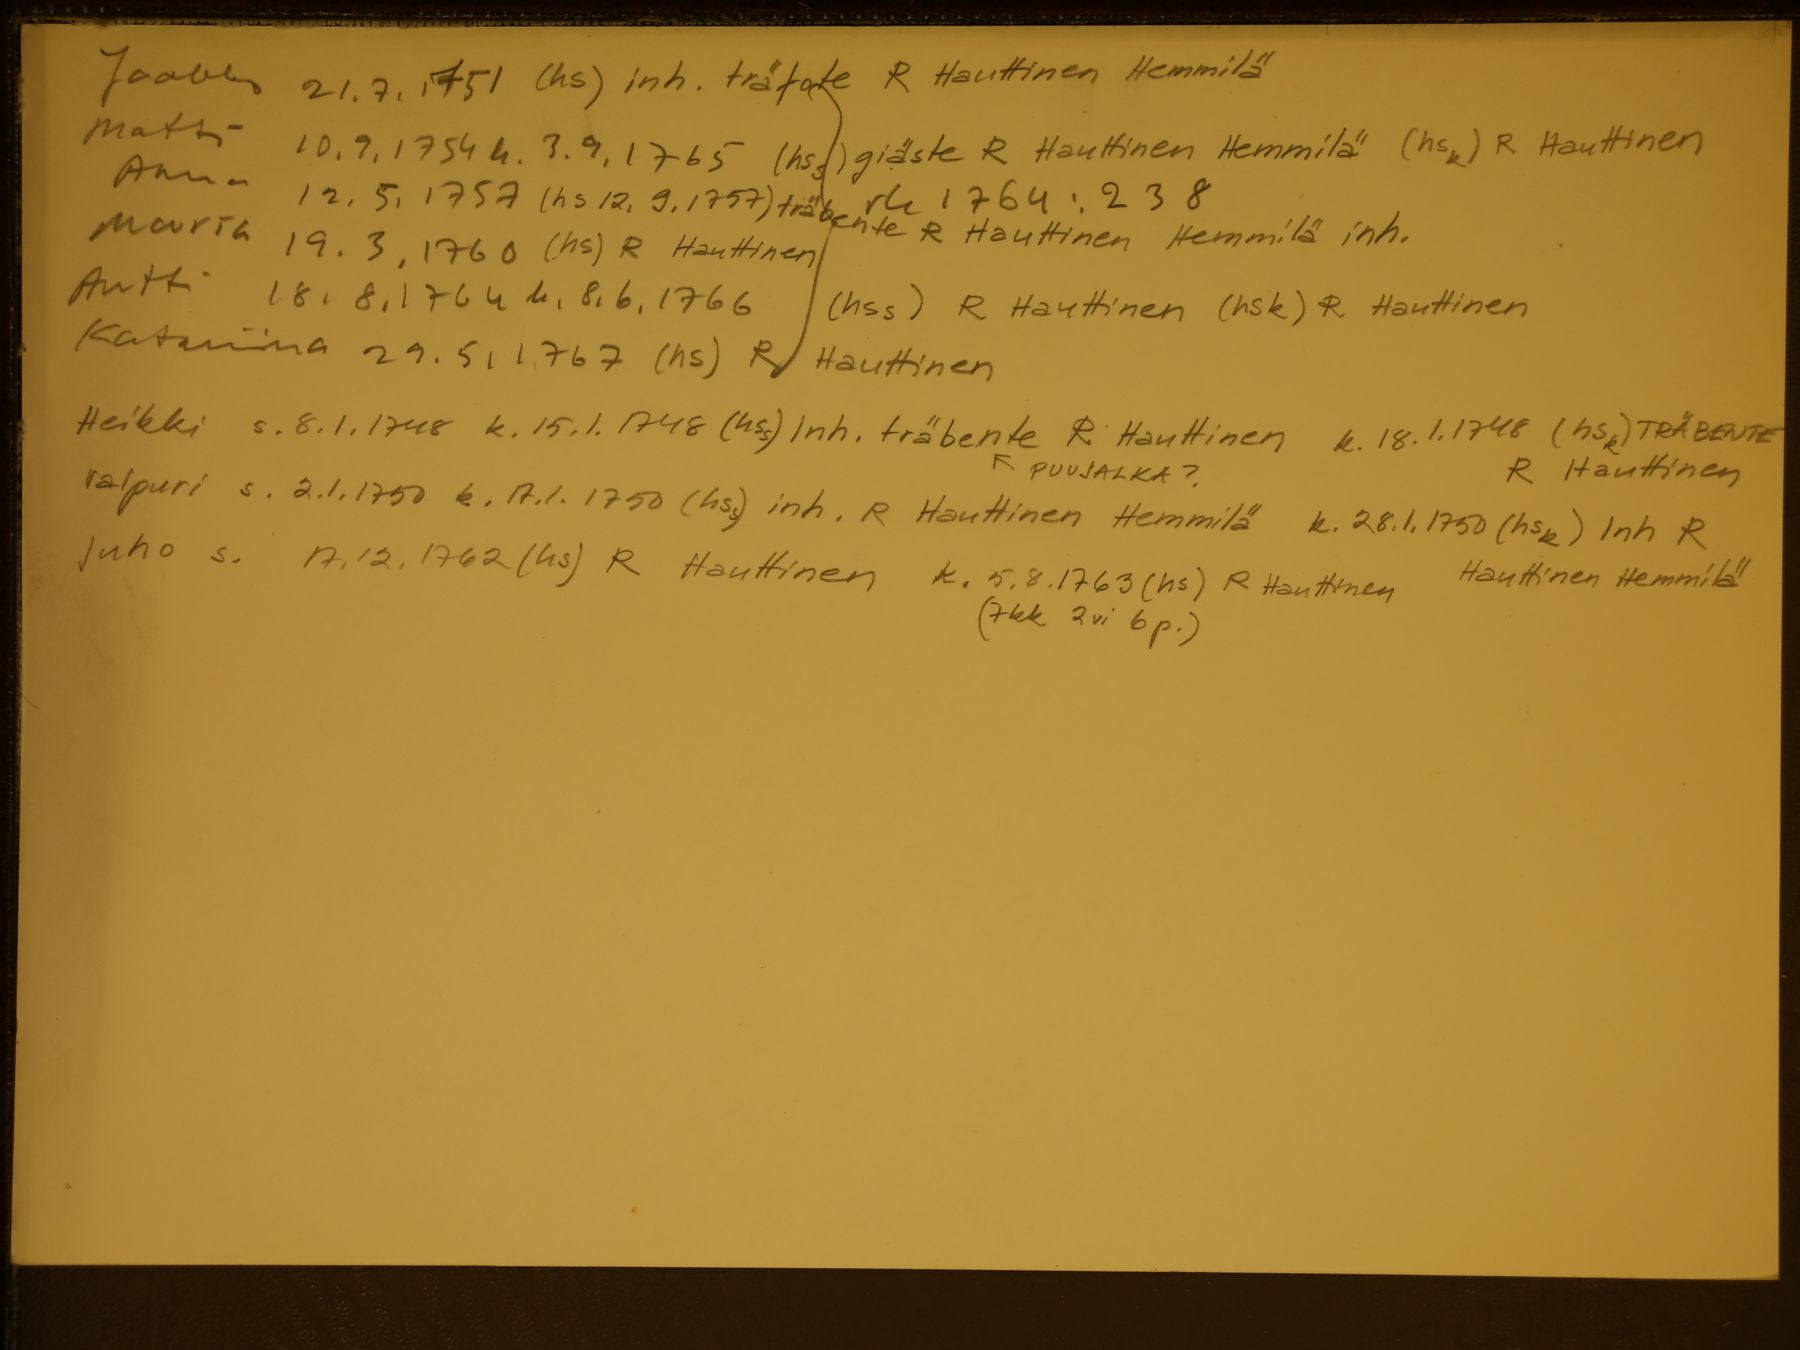 Jaakko 21.7.1751 (hs) inh. träfote R Hauttinen Hemmilä
Matti 10.9.1754 k. 3.9.1765 (hss) giäste R Hauttinen Hemmilä (hsk) R Hauttinen
Anna 12.5.1757 (hs 12.9.1757) träbente R Hauttinen Hemmilä inh.
rk 1764:238
Maria 19.3.1760 (hs) R Hauttinen
Antti 18.8.1764 k. 8.6.1766 (hss) R Hauttinen (hsk) R Hauttinen
Katariina 29.5.1767 (hs) R Hauttinen
Heikki s. 8.1.1748 k. 15.1.1748 (hss) Inh. träbente R Hauttinen k. 18.1.1748 (hsk) TRÄBENTE
↖ PUUJALKA? R Hauttinen
Valpuri s. 2.1.1750 k. 17.1.1750 (hss) inh. R Hauttinen Hemmilä k. 28.1.1750 (hsk) Inh R
Hauttinen Hemmilä
Juho s. 17.12.1762 (hs) R Hauttinen k. 5.8.1763 (hs) R Hauttinen
(7kk 2vi 6p.)